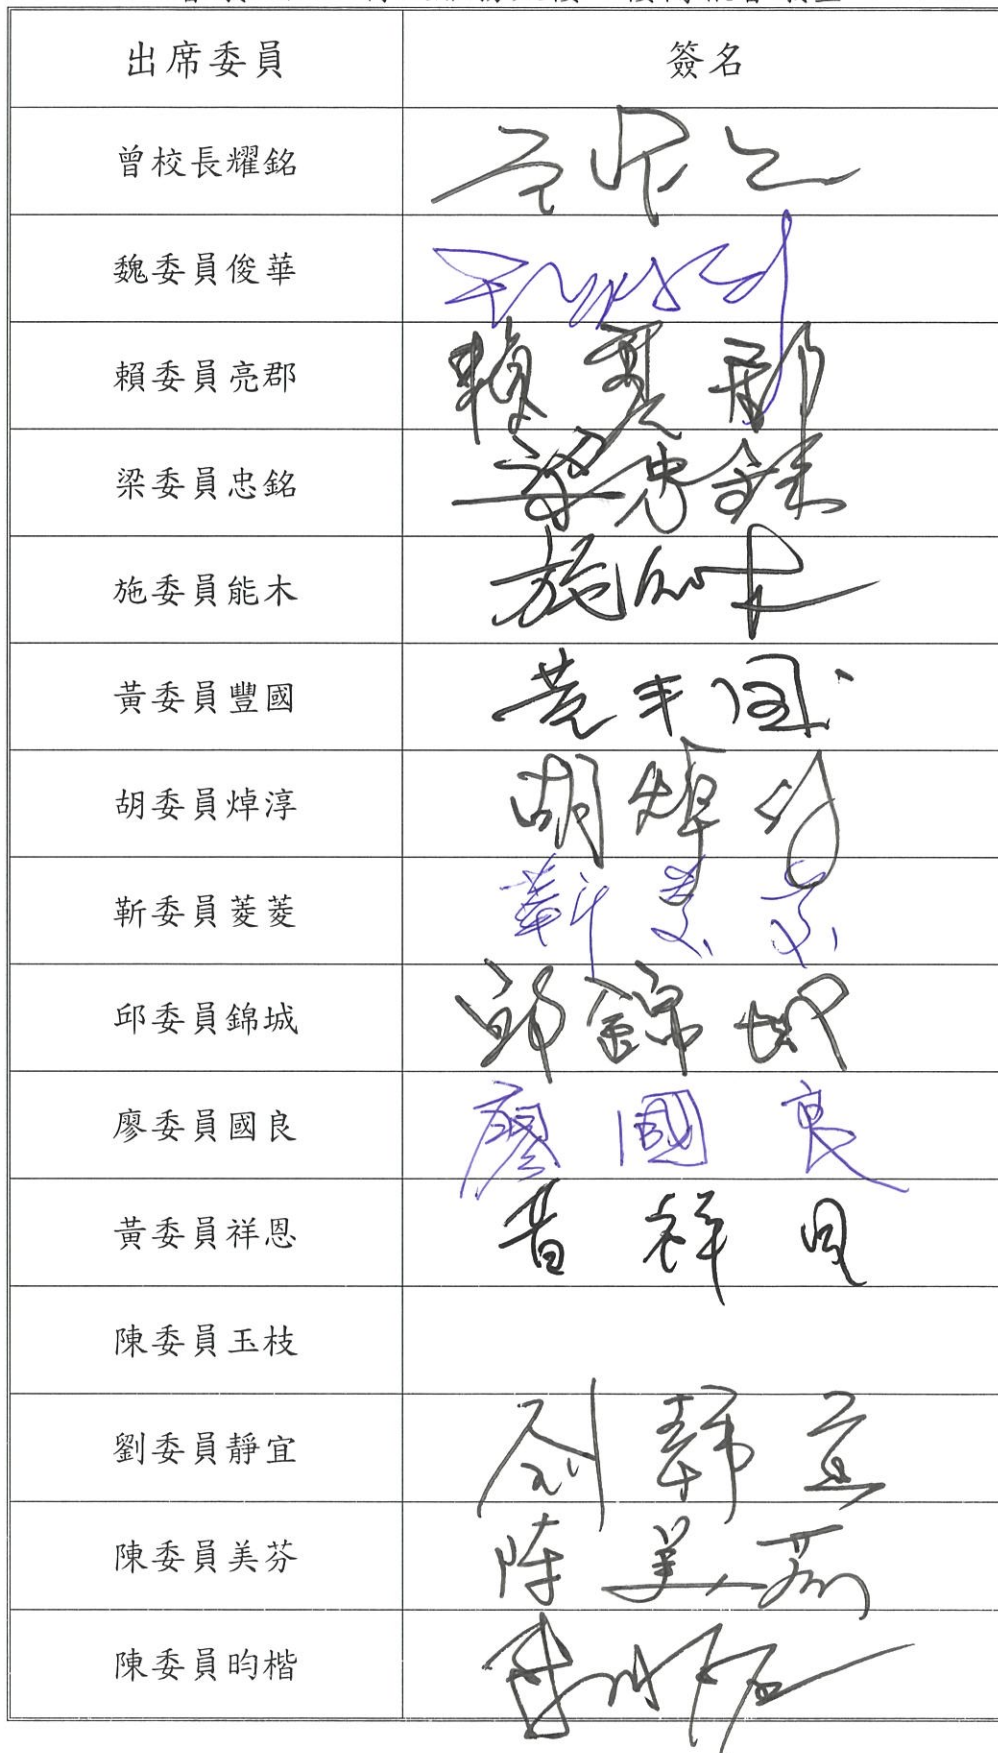 出席委員 簽名
曾校長耀銘
魏委員俊華
賴委員亮郡 賴亮郡
梁委員忠銘 梁忠銘
施委員能木 施能木
黃委員豐國 黃丰国
胡委員焯淳 胡焯
靳委員菱菱 靳菱菱
邱委員錦城 邱錦城
廖委員國良 廖國良
黃委員祥恩 黃祥恩
陳委員玉枝
劉委員靜宜 劉靜宜
陳委員美芬 陳美芬
陳委員昀楷